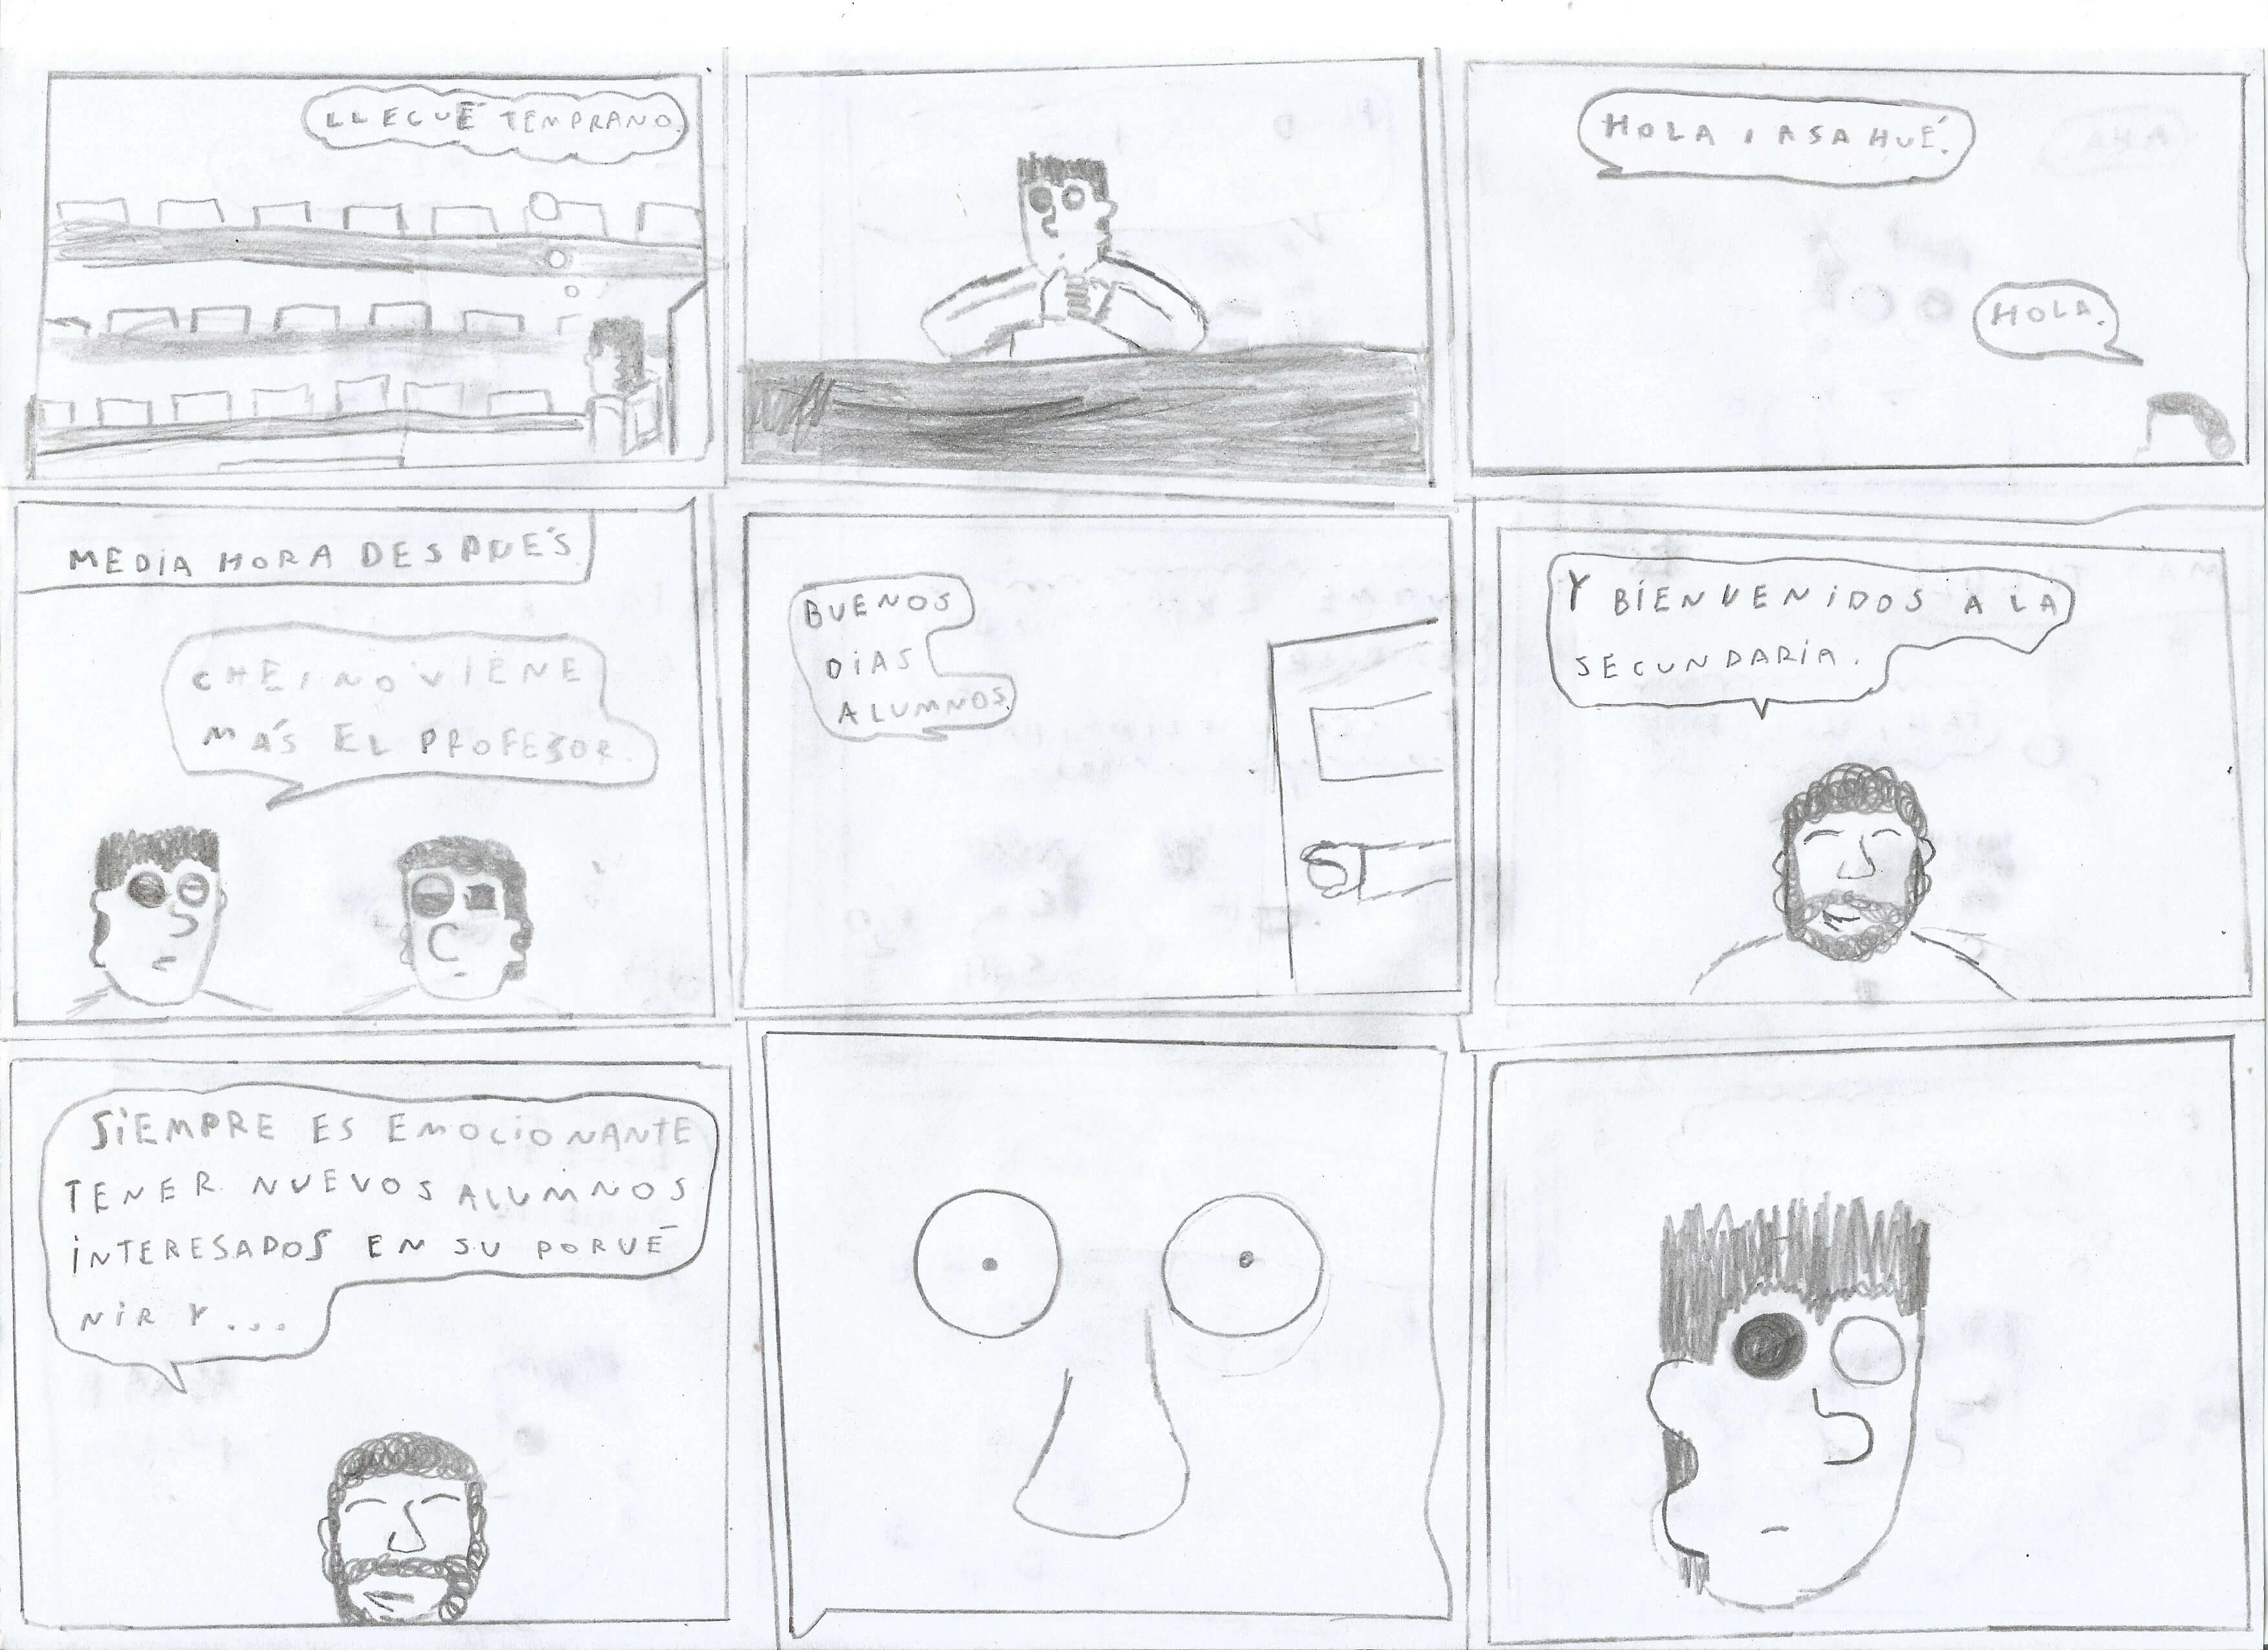 LLEGUÉ TEMPRANO.
HOLA, ASAHUÉ.
HOLA.
MEDIA HORA DESPUÉS
CHE, NO VIENE
MÁS EL PROFESOR.
BUENOS
DÍAS
ALUMNOS
Y BIENVENIDOS A LA
SECUNDARIA.
SIEMPRE ES EMOCIONANTE
TENER NUEVOS ALUMNOS
INTERESADOS EN SU PORVE
NIR Y...